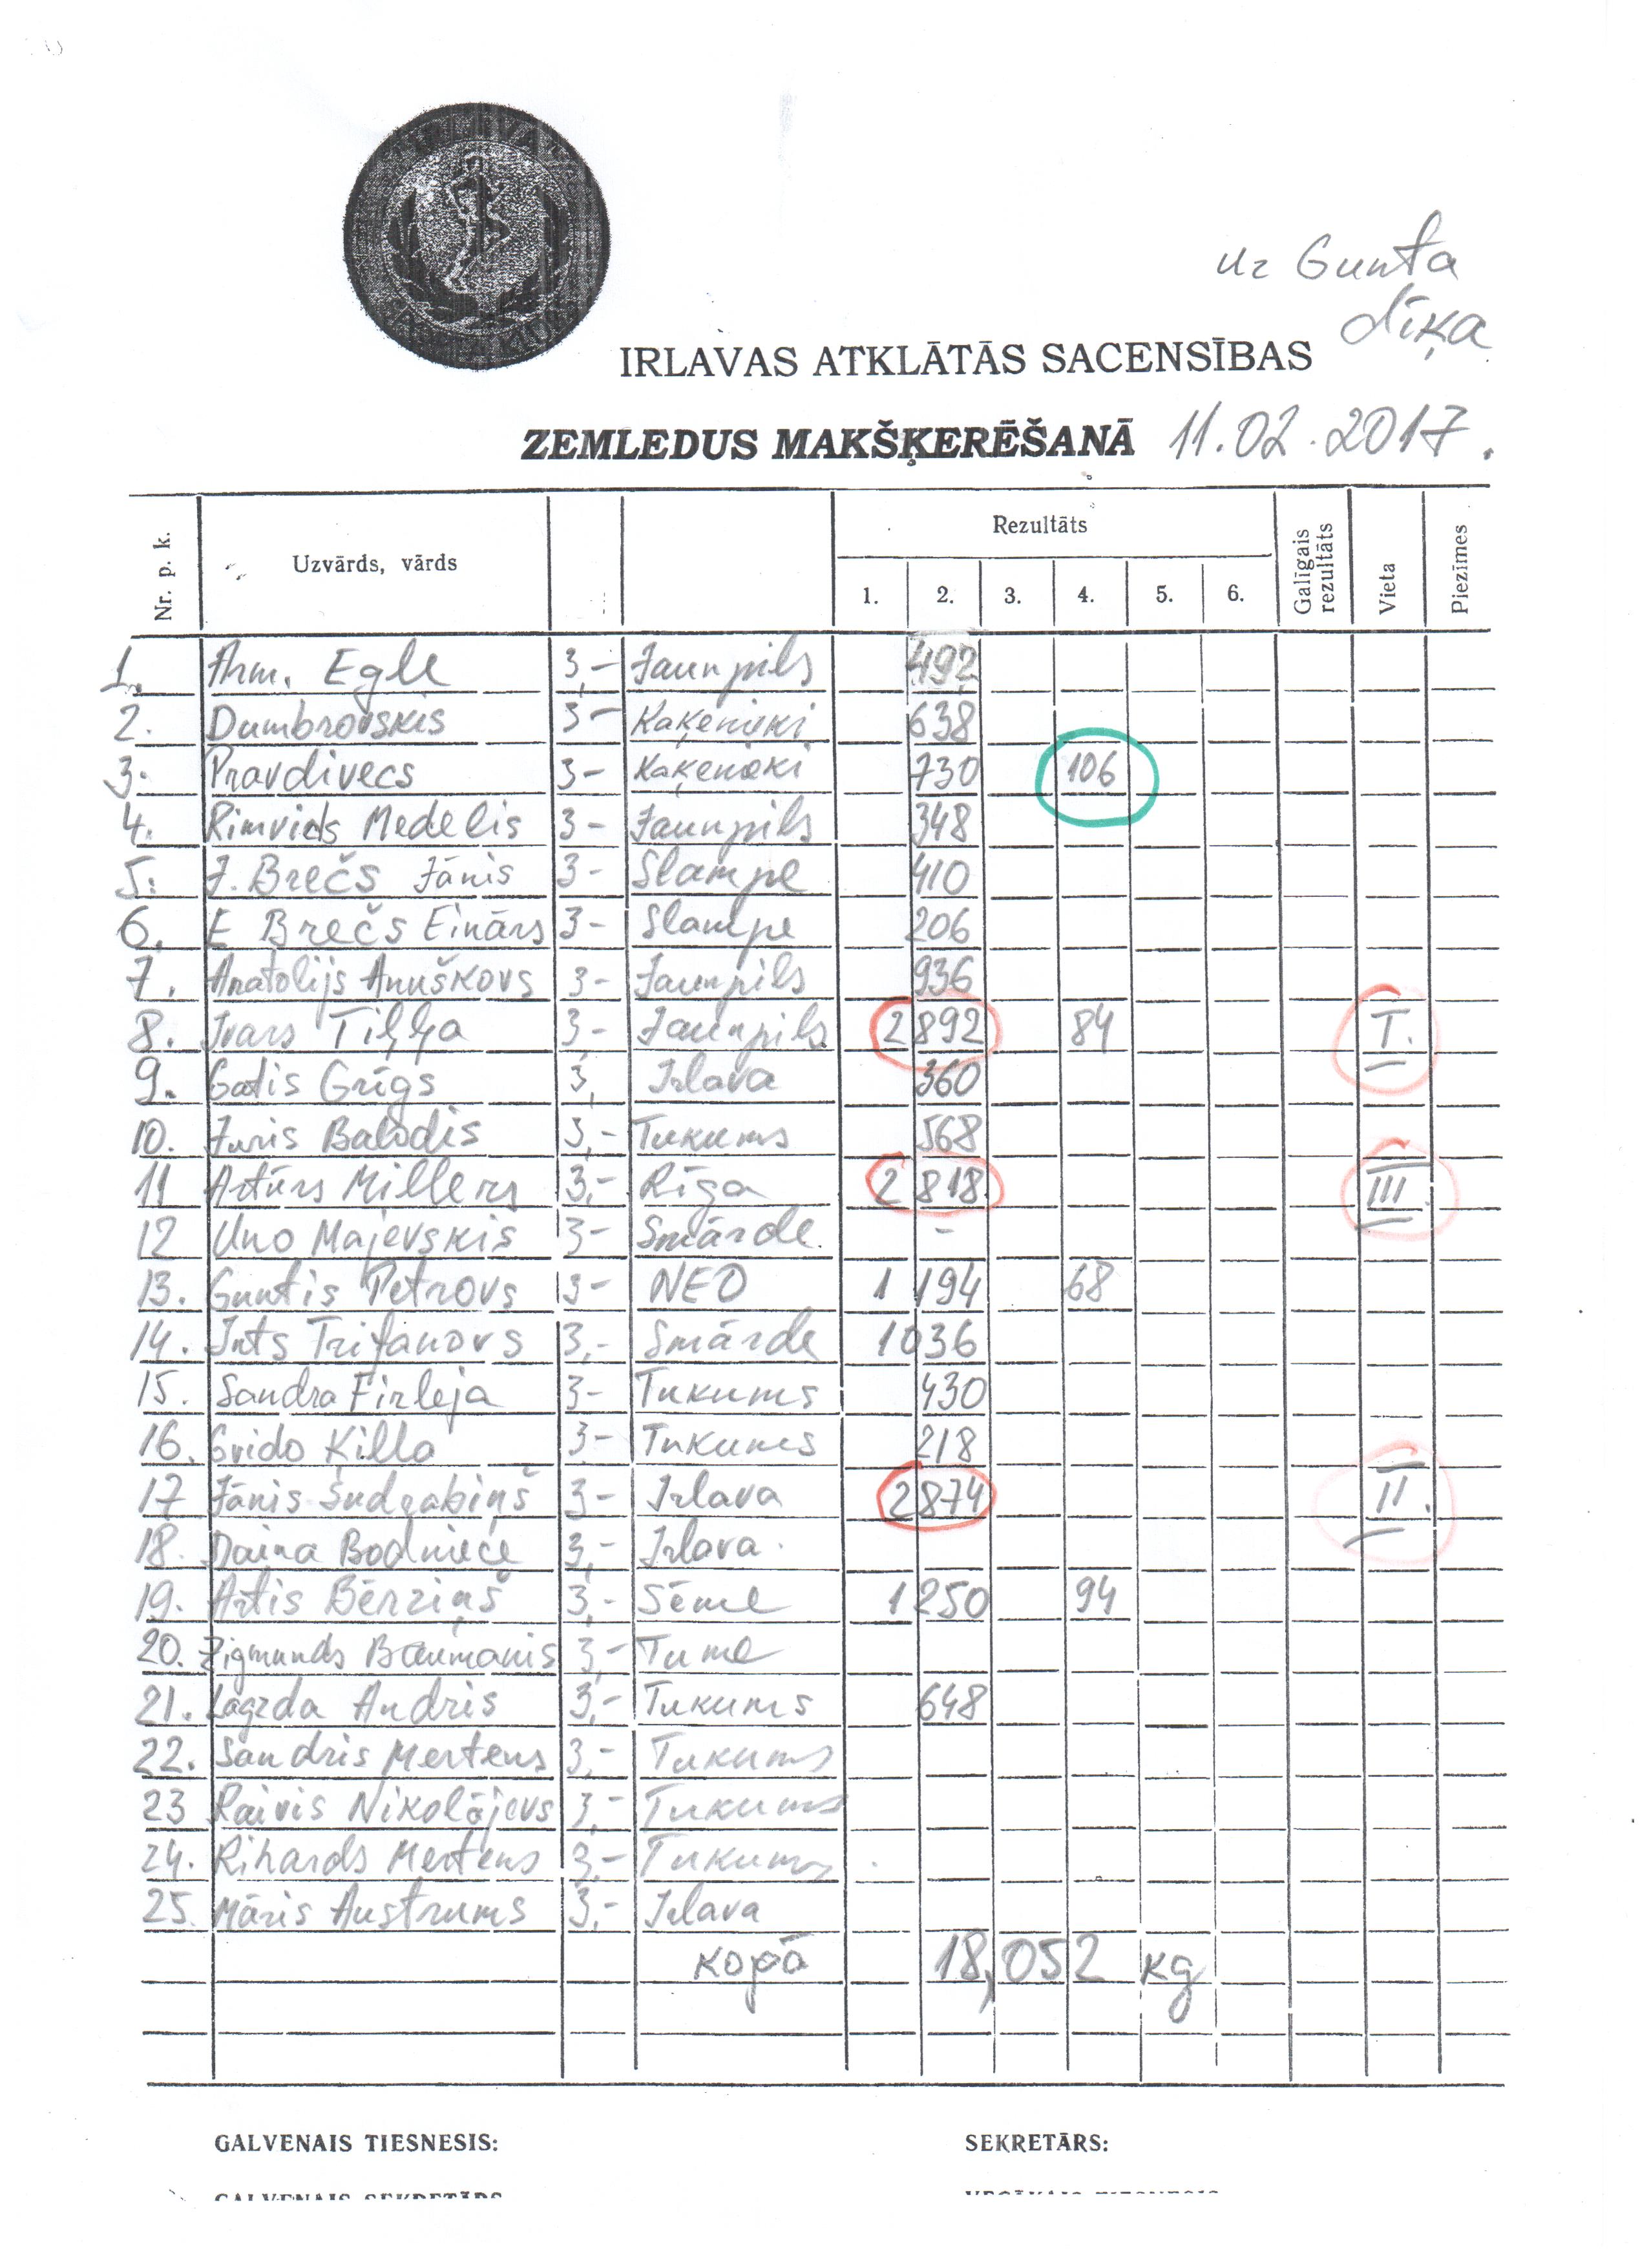 uz Gunta
dīķa
IRLAVAS ATKLĀTĀS SACENSĪBAS
ZEMLEDUS MAKŠĶERĒŠANĀ 11.02.2017.
Nr. p. k. Uzvārds, vārds Rezultāts Galīgais rezultāts Vieta Piezīmes
1. 2. 3. 4. 5. 6.
1. Arm. Egle 3,- Jaunpils 492
2. Dumbrovskis 3- Kaķenieki 638
3. Pravdivecs 3- Kaķenieki 730 106
4. Rimvids Medelis 3- Jaunpils 348
5. J. Brečs Jānis 3- Slampe 410
6. E Brečs Einārs 3- Slampe 206
7. Anatolijs Anuškovs 3- Jaunpils 936
8. Ivars Tiļļa 3- Jaunpils 2892 84 I.
9. Gatis Grīgs 3, Irlava 360
10. Juris Balodis 3,- Tukums 568
11 Artūrs Millers 3,- Rīga 2818 III
12 Uno Majevskis 3- Smārde. -
13. Guntis Petrovs 3- NEO 1194 68
14. Ints Trifanovs 3,- Smārde 1036
15. Sandra Firleja 3- Tukums 430
16. Gvido Ķilla 3- Tukums 218
17 Jānis Sudrabiņš 3- Irlava 2874 II.
18. Daina Bodniece 3,- Irlava.
19. Artis Bērziņš 3,- Sēme 1250 94
20. Zigmunds Baumanis 3,- Tume
21. Lagzda Andris 3,- Tukums 648
22. Sandris Mertens 3,- Tukums
23 Raivis Nikolājevs 3,- Tukums
24. Rihards Mertens 3,- Tukums
25. Māris Austrums 3,- Irlava
kopā 18,052 kg
GALVENAIS TIESNESIS: SEKRETĀRS: